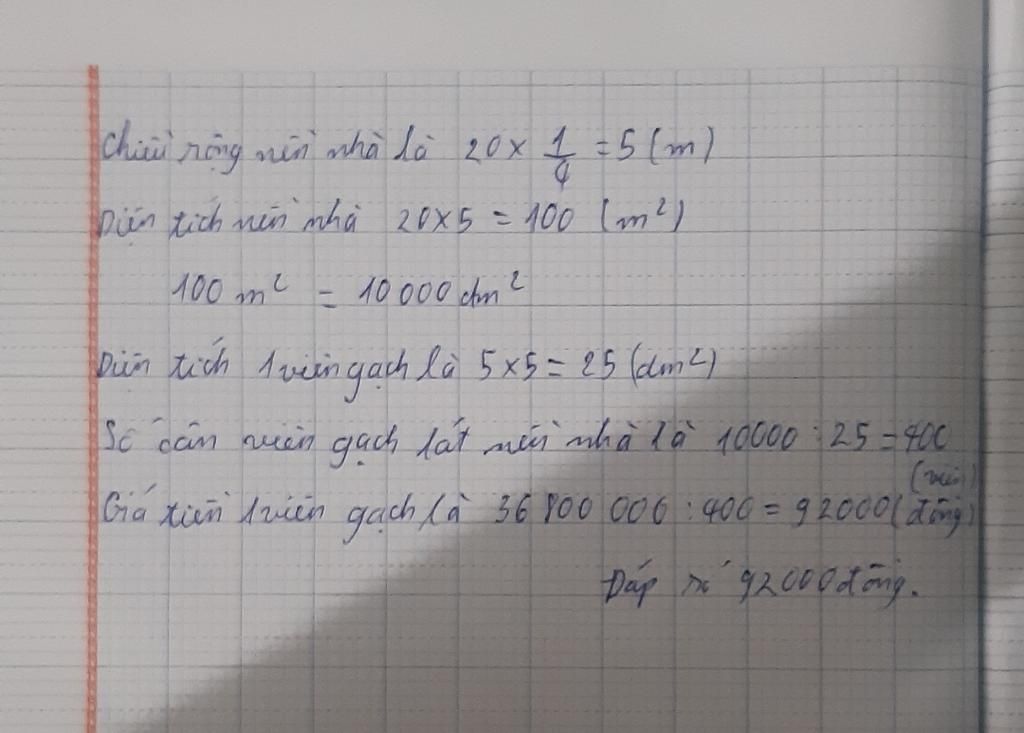 Chiều rộng nền nhà là 20 × 1/4 = 5 (m)
Diện tích nền nhà 20×5 = 100 (m²)
100 m² = 10 000 dm²
Diện tích 1 viên gạch là 5×5 = 25 (dm²)
Số cần viên gạch lát nền nhà là 10000 : 25 = 400
(viên)
Giá tiền 1 viên gạch là 36 800 000 : 400 = 92000 (đồng)
Đáp số 92000 đồng.